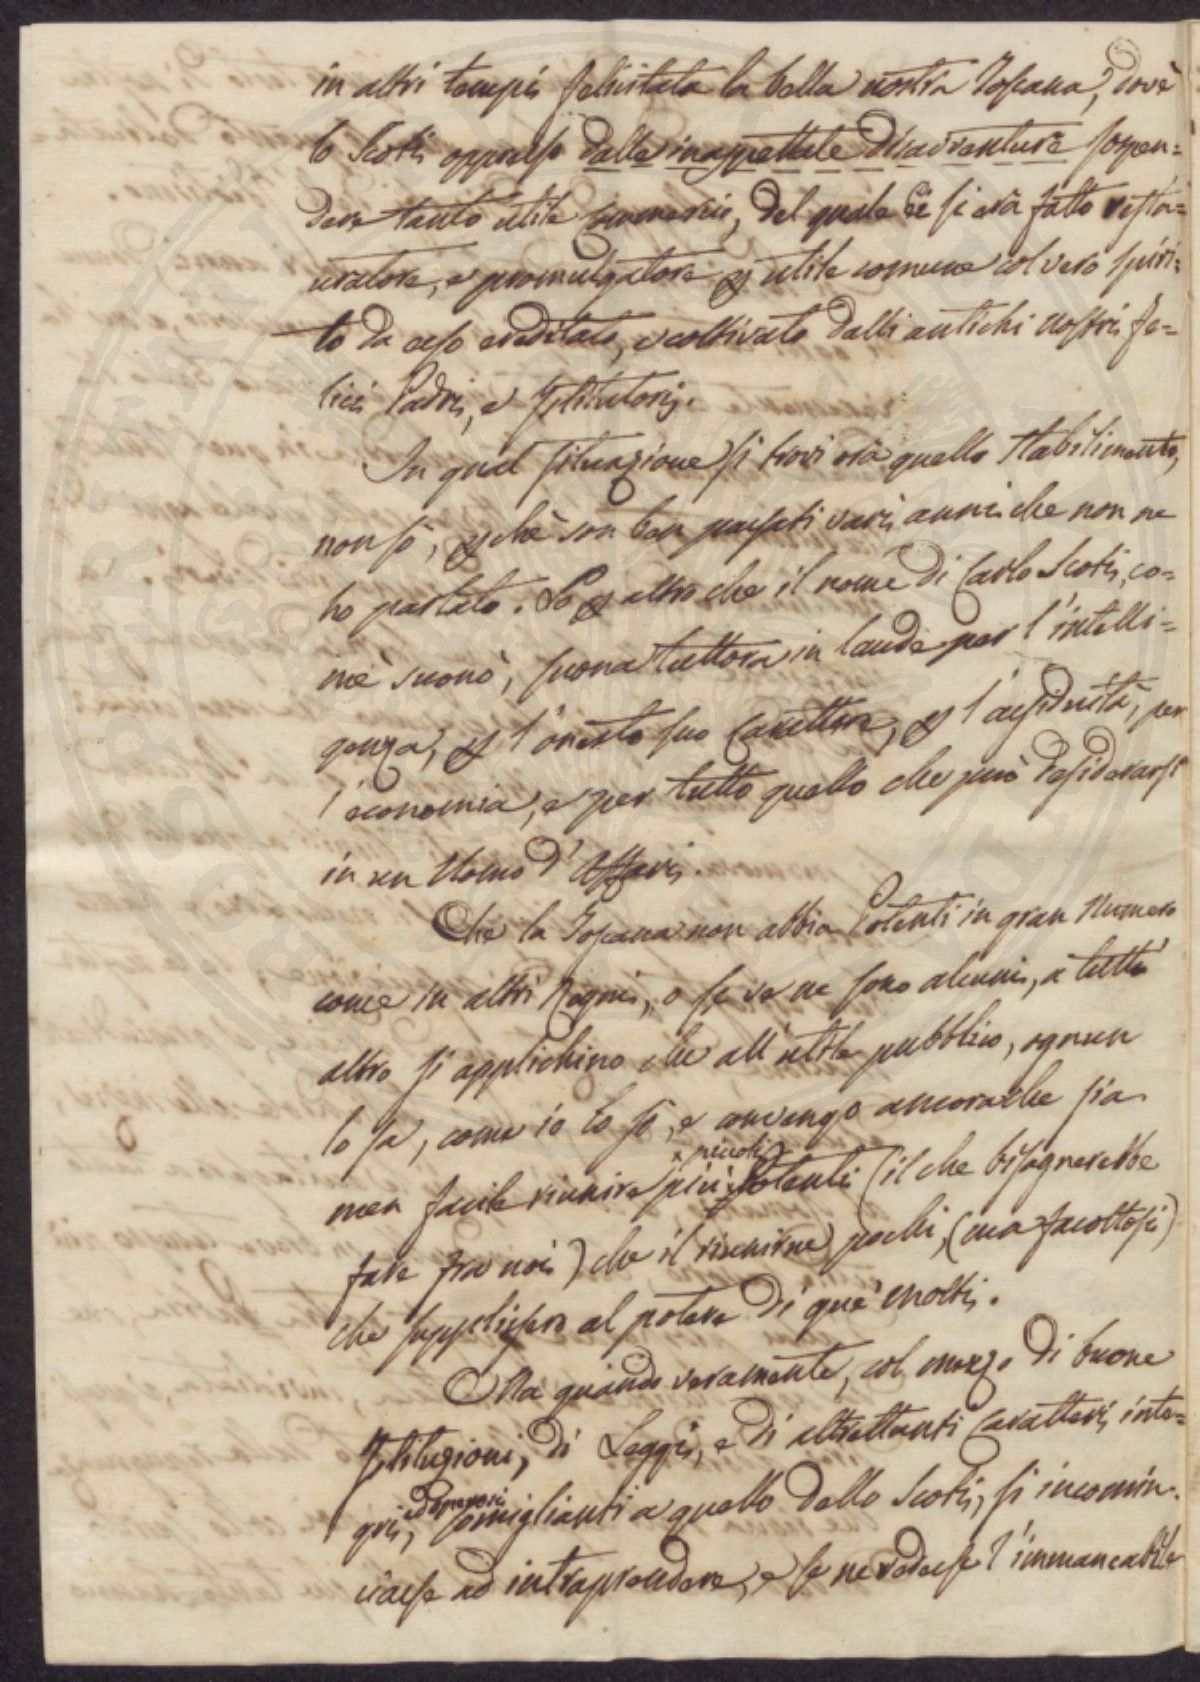 in altri tempi felicitata la bella nostra Toscana, dovè
lo Scoti oppresso dalle inaspettate disavventure sospen=
dere tanto utile commercio, del quale si era fatto resta=
uratore, e promulgatore utile comune col vero spiri=
to da esso ereditato, e coltivato dalli antichi nostri fe=
lici Padri, e Istitutori.
In qual situazione si trovi ora quello stabilimento,
non so, chè son ben passati varj anni che non ne
ho parlato. So altro che il nome di Carlo Scoti, co=
me suonò, suona tuttora in laude per l'intelli=
genza, l'onesto suo Carattere, l'assiduità, per
l'economia, e per tutto quello che può desiderarsi
in un Uomo d'Affari.
Che la Toscana non abbia Potenti in gran numero
come in altri Regni, o se ve ne sono alcuni, a tutt'
altro si applichino che all'utile pubblico, ognun
lo sa, come io lo so, e convengo ancora che sia
men facile riunire più piccoli Potenti (il che bisognerebbe
fare fra noi) che il riunirne pochi, (ma facoltosi)
che supplissero al potere di que' molti.
Ma quando veramente, col mezzo di buone
Istituzioni, di Leggi, e di altrettanti Caratteri inte=
gri, somiglianti a quello dello Scoti, si incomin=
ciasse ad intraprendere, e se ne vedesse l'immancabile